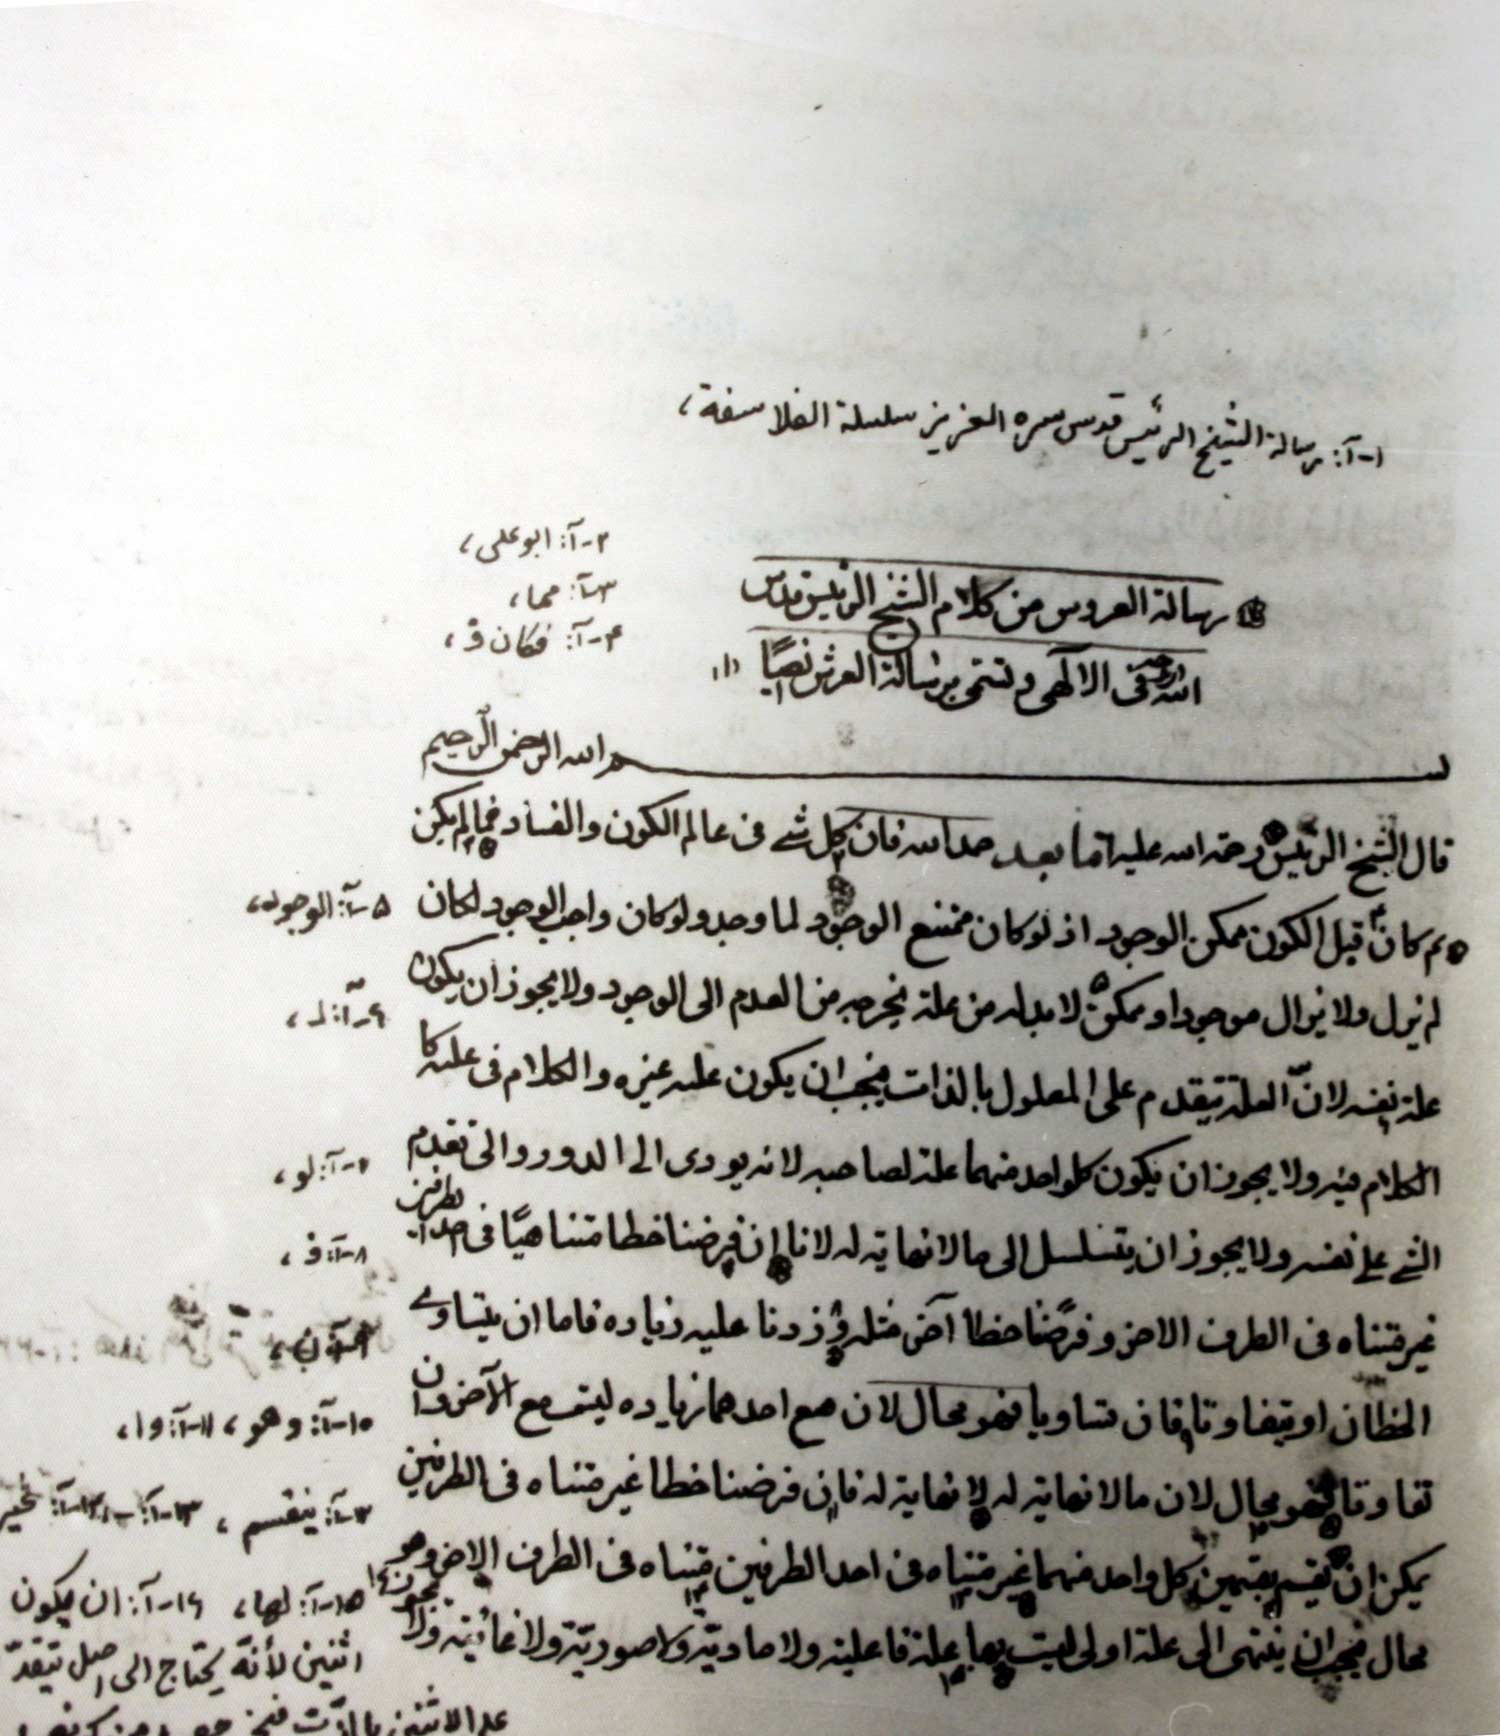 ١-آ: رسالة الشيخ الرئيس قدس سره العزيز سلسلة الفلاسفة،
٢-آ: ابو على،
٣-آ: مما،
٤-آ: فكان ق،
رسالة العروس من كلام الشيخ الرئيس قدس
الله روحه فى الالٓهى وتسمى برسالة العرش نصيًا (١)
بسم الله الرحمن الرحيم
قال الشيخ الرئيس رحمة الله عليه اما بعد حمد الله فان كل شے فى عالم الكون والفساد فمالم يكن
ثم كان قبل الكون ممكن الوجود اذ لو كان ممتنع الوجود لما وجد ولو كان واجب الوجود لكان
٥-آ: الوجود،
لم يزل ولا يزال موجودا وممكن لا بد له من علة يخرجه من العدم الى الوجود ولا يجوز ان يكون
٦-آ: له،
علة نفسه لانّ العلة تتقدم على المعلول بالذات فيجب ان يكون علته غيره والكلام فى علته كا
الكلام فيه ولا يجوز ان يكون كلواحد منهما علة لصاحبه لانه يودى الى الدور والى تقدم
٧-آ: لو،
الشے على نفسه ولا يجوز ان يتسلسل الى مالا نهاية له لانا ان فرضنا خطا متناهيًا فى احد الطرفين
٨-آ: ف،
غير متناه فى الطرف الاخر وفرضنا خطا آخر مثله و زدنا عليه زيادة فاما ان يتساوے
الخطان او يتفاوتا فان تساويا فهو محال لان مع احدهما زيادة ليست مع الآخر وان
١٠-آ: وهو، ١١-آ: وا،
تفاوتا فهو محال لان مالا نهاية له لا نهاية له فان فرضنا خطا غير متناه فى الطرفين
١٢-آ: ينقسم،
يمكن ان تقسم بقسمين كل واحد منهما غير متناه فى احد الطرفين متناه فى الطرف الاخر وهو
١٥-آ: لها، ١٦-آ: ان يكون
محال فيجب ان ينتهى الى علة اولى ليست بها علة فاعلية ولا مادية ولا صورية ولا غائية ولا
اثنين لأنّه يحتاج الى اصل يتقدّ